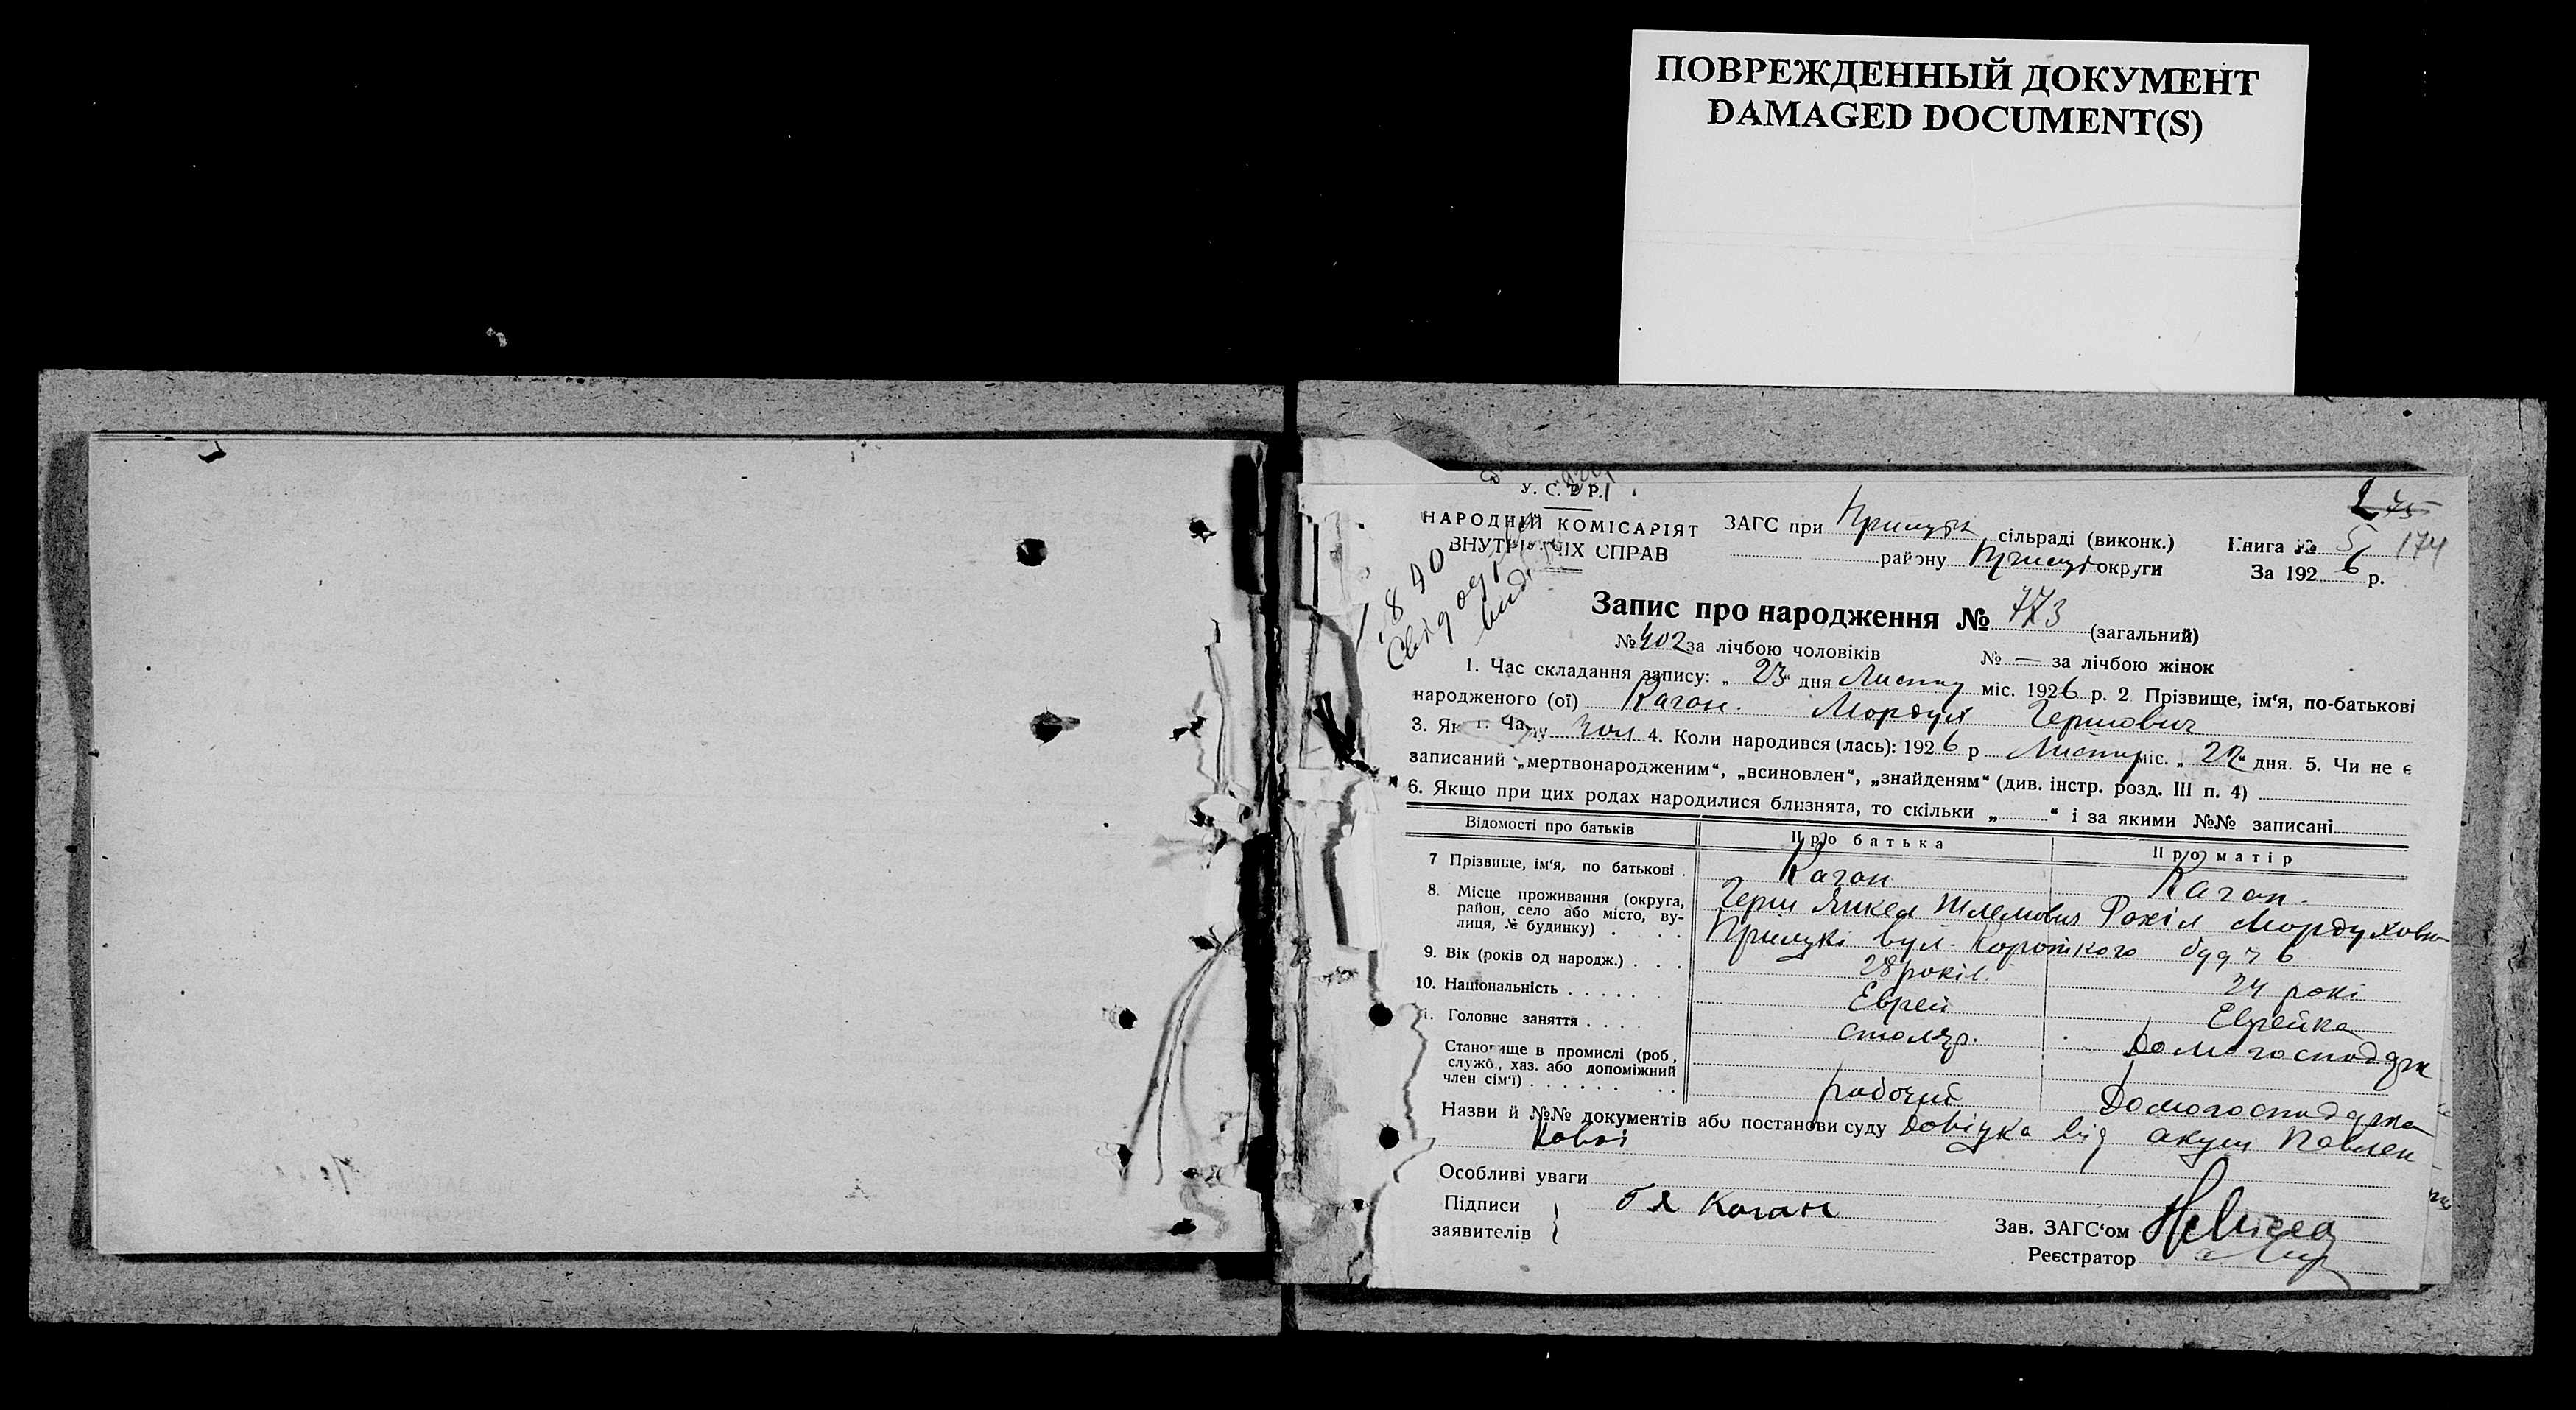 ПОВРЕЖДЕННЫЙ ДОКУМЕНТ
DAMAGED DOCUMENT(S)
У. С. Р Р.
НАРОДНІЙ КОМІСАРІЯТ
ВНУТРІШНІХ СПРАВ
ЗАГС при Прилуцьк сільраді (виконк.)
району Прилуц округи
275
Книга № 5 174
За 1926 р.
Запис про народження № 773 (загальний)
№ 402 за лічбою чоловіків № — за лічбою жінок
1. Час складання запису: „ 23 “ дня Листоп міс. 1926 р. 2 Прізвище, ім‘я, по-батькові
народженого (ої) Каган. Мордух Гершович
3. Як чол 4. Коли народився (лась): 1926 р Листоп міс. „ “ дня. 5. Чи не є
записаний „мертвонародженим“, „всиновлен“, „знайденям“ (див. інстр. розд. III п. 4)
6. Якщо при цих родах народилися близнята, то скільки „ “ і за якими №№ записані
Відомості про батьків Про батька Про матір
7 Прізвище, ім‘я, по батькові . Каган Каган.
Герш Янкел Шлемович Рохіл Мордуховна
8. Місце проживання (округа, район, село або місто, вулиця, № будинку) . . . . Прилукі вул. Короткого буд 7 6
9. Вік (років од народж.) . . . 28 років. 24 рокі
10. Національність . . . . . Еврей Еврейка
Головне заняття . . . . столяр. Домогосподарк
Становище в промислі (роб, служб., хаз. або допоміжний член сім‘ї) . . . . . . робочий Домогосподарка
Назви й №№ документів або постанови суду Довідка від акуш Павлен
кової
Особливі уваги
Підписи
заявителів
Г Я Каган
Зав. ЗАГС‘ом
Реєстратор